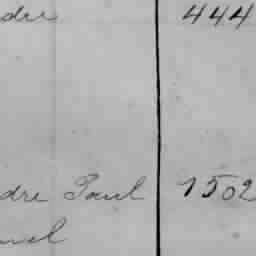 dre 444
dre Paul 1502